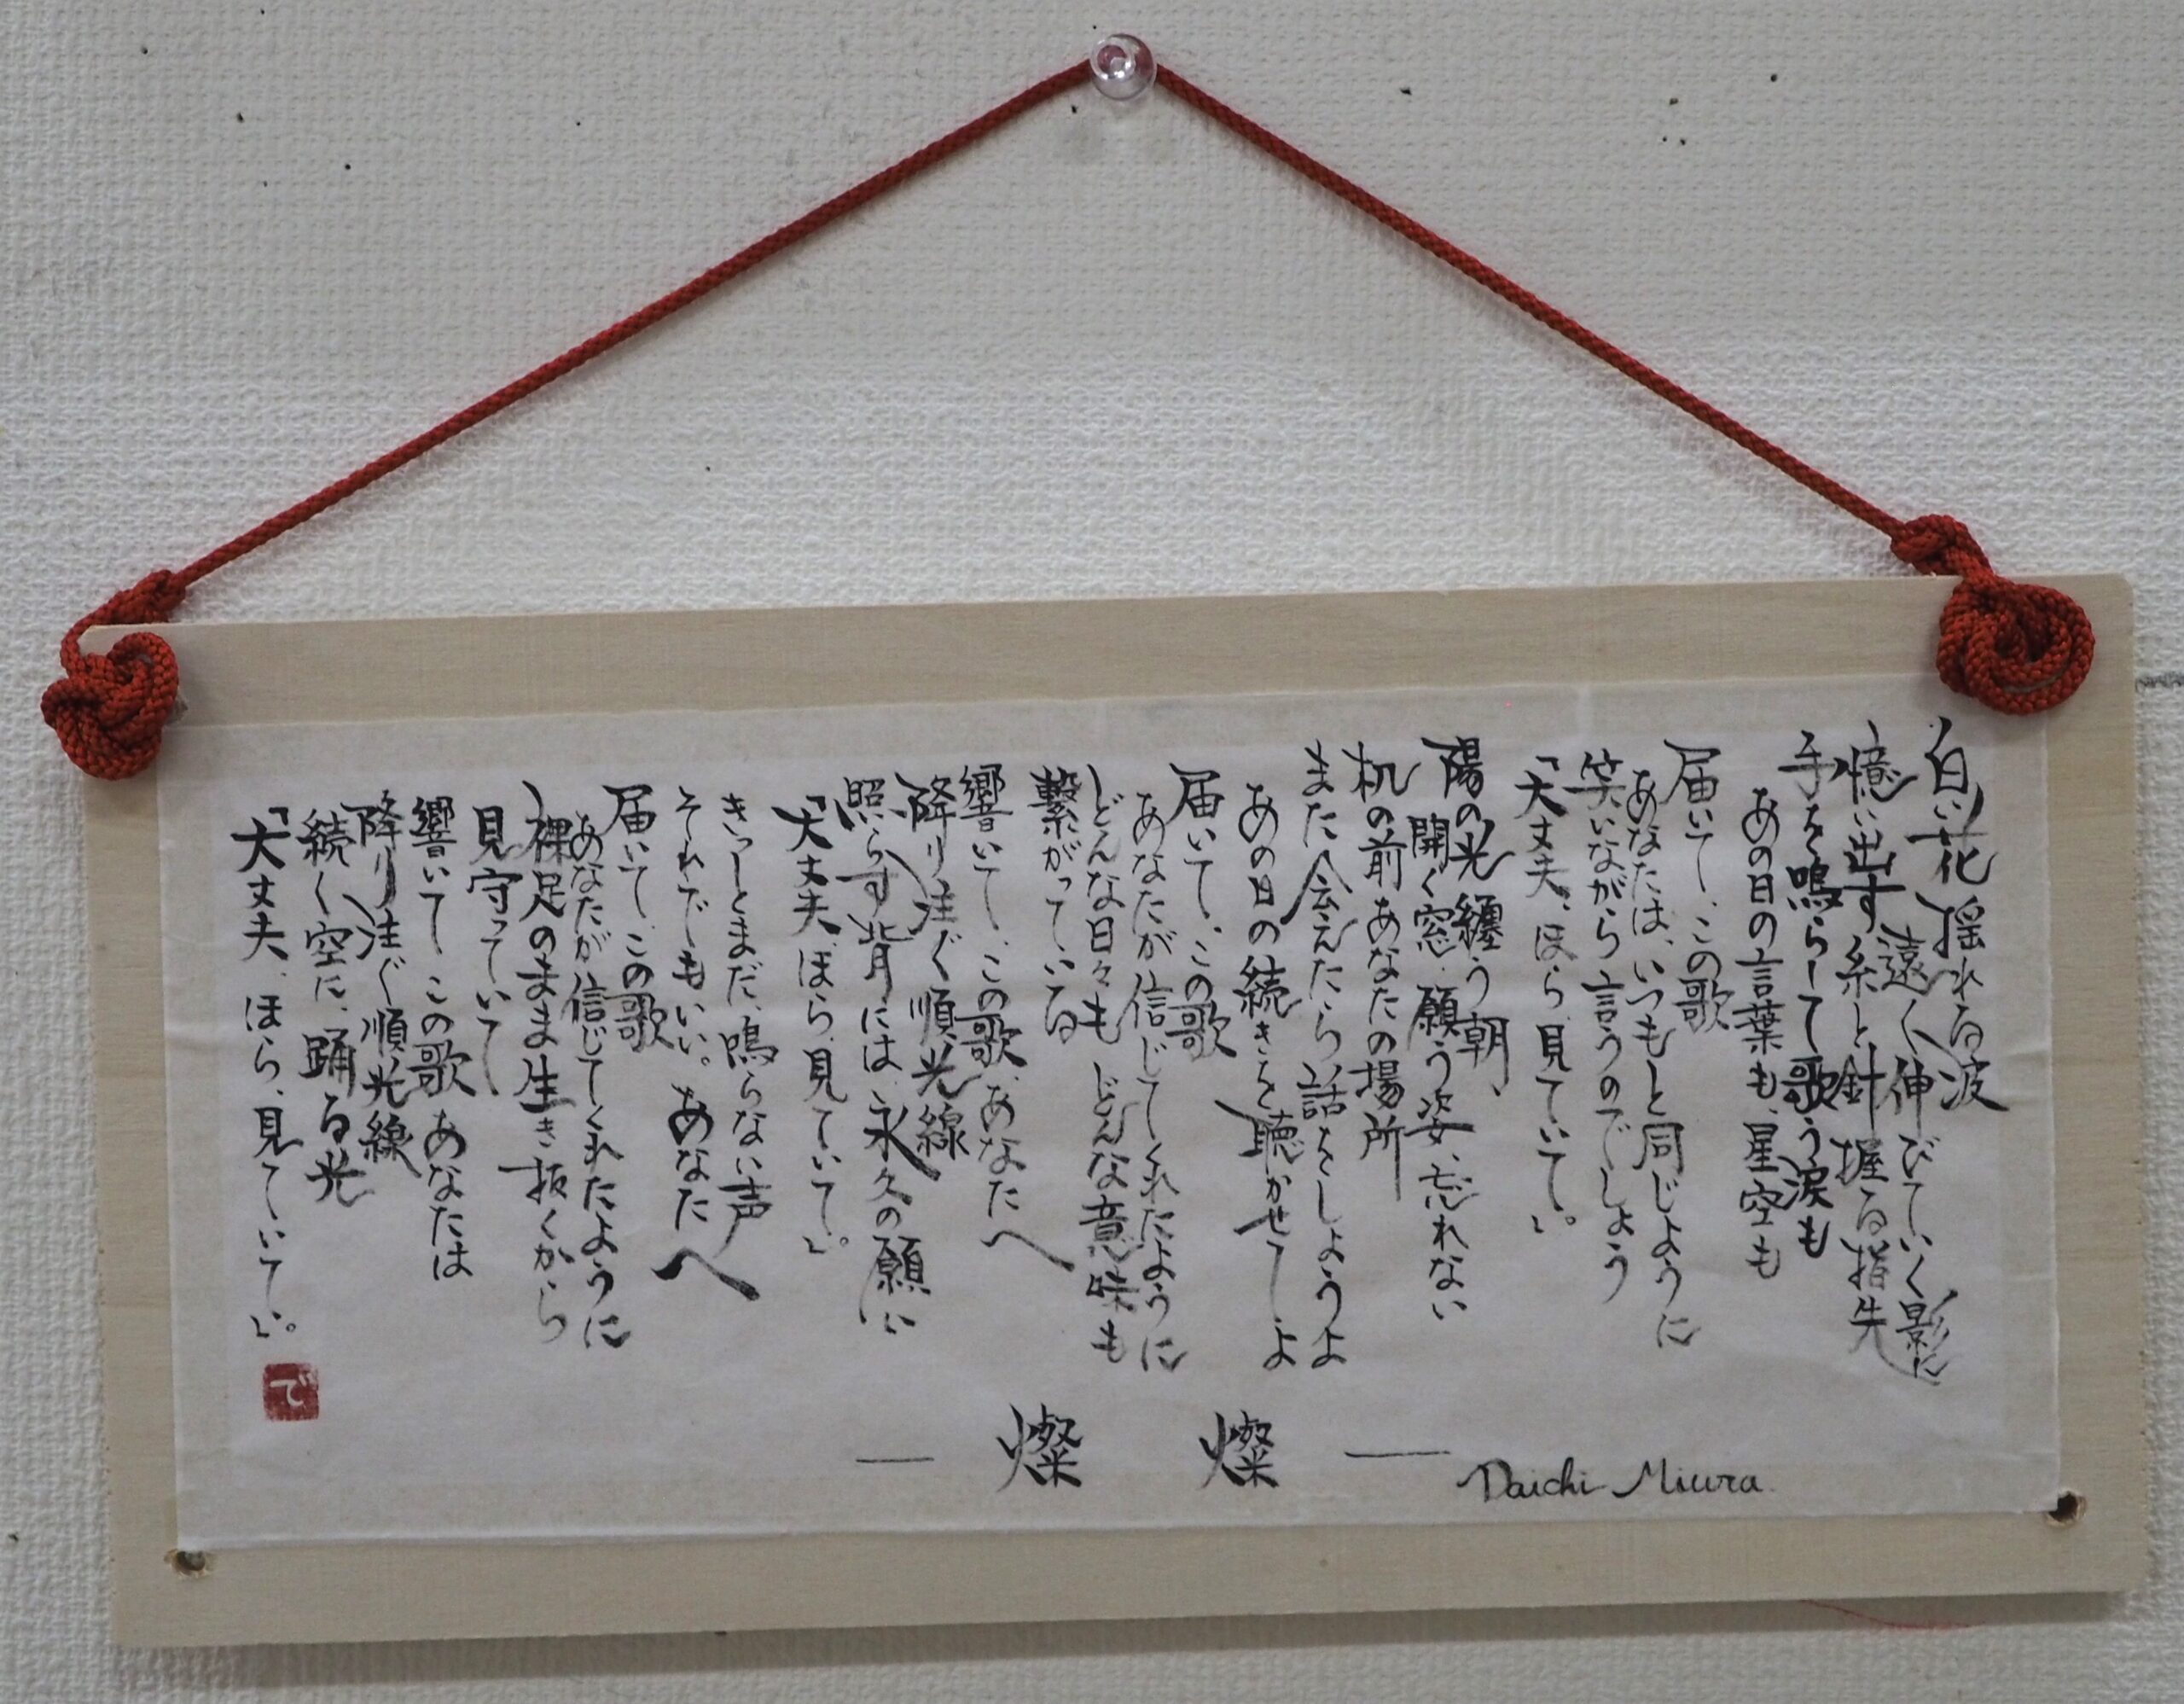 白い花 揺れる波
遠く伸びていく影に
憶い出す 糸と針 握る指先
手を鳴らして歌う涙も
あの日の言葉も、星空も
届いて、この歌
あなたは、いつもと同じように
笑いながら言うのでしょう
「大丈夫、ほら見ていて」。
陽の光纏う朝、
開く窓、願う姿、忘れない
机の前あなたの場所
また会えたら話をしようよ
あの日の続きを聴かせてよ
届いて、この歌
あなたが信じてくれたように
どんな日々も どんな意味も
繋がっている
響いて、この歌、あなたへ
降り注ぐ順光線
照らす背には、永久の願い
「大丈夫、ほら、見ていて」。
きっとまだ、鳴らない声
それでもいい。あなたへ
届いて、この歌
あなたが信じてくれたように
裸足のまま生き抜くから
見守っていて
響いて、この歌 あなたは
降り注ぐ順光線
続く空に、踊る光
「大丈夫、ほら、見ていて」。
で
— 燦 燦 —
Daichi Miura